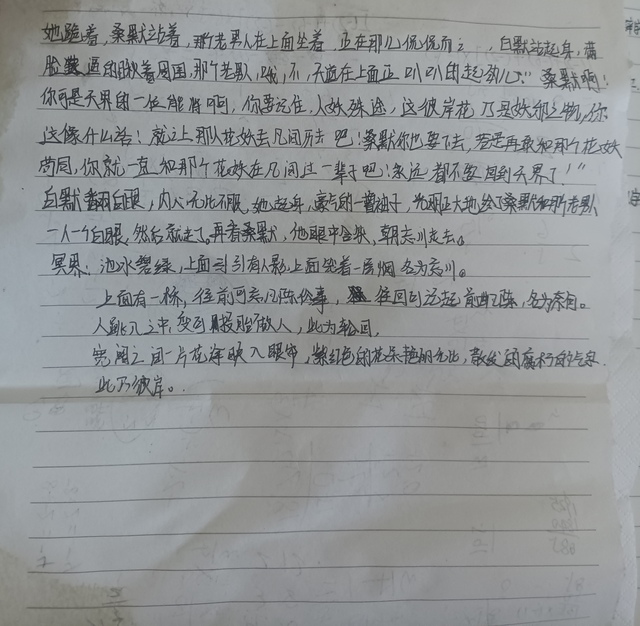 她跪着，桑默站着，那个老男人在上面坐着，正在那儿侃侃而言，白默站起身，满
脸的瞅着周围，那个老男人，哦，不，天道在上面正叭叭的起劲儿"桑默啊！
你可是天界的一位能将啊，你要记住，人妖殊途，这彼岸花乃是妖邪之物，你
这像什么话！就让那人花妖去凡间历劫吧！桑默你也要下去，若是再敢和那个花妖
苟同，你就一直和那个花妖在凡间过一辈子吧！永远都不要回到天界了！"
白默翻白眼，内心无比不服，她起身，豪气的一甩袖子，光明正大地给了桑默和那个老男人
一人一个白眼，然后就走了。再看桑默，他眼中含笑，朝忘川走去。
冥界：池水碧绿，上面有人影，上面笼着一层烟名为忘川。
上面有一桥，往前可忘凡陈俗事，往回可忆起前尘，名为奈何。
人跳入之中，投胎做人，此为轮回。
之间一片花海映入眼中，紫红色的花朵艳丽无比，散发的腐朽的气息
此乃彼岸。